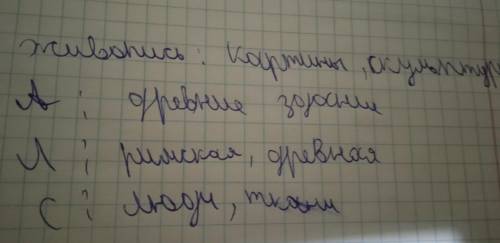 живопись: картины, скульптуры
А: древние здания
Л: римская, древная
С: люди, ткани